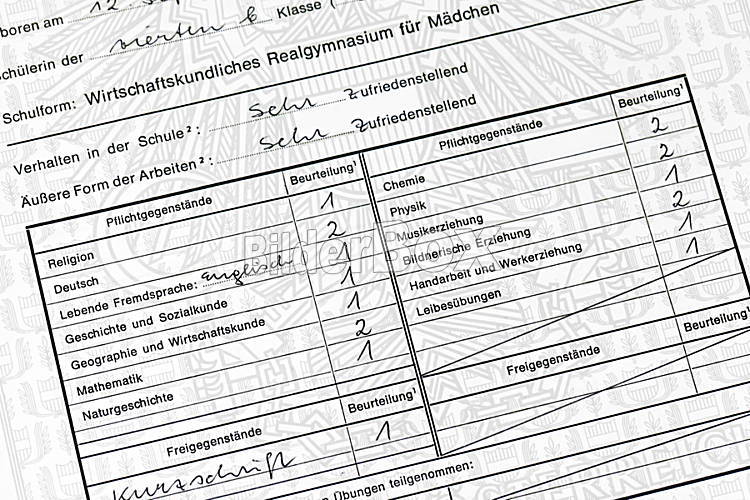 boren am 12. Sep
chülerin der vierten b Klasse (
Schulform: Wirtschaftskundliches Realgymnasium für Mädchen
Verhalten in der Schule²: sehr Zufriedenstellend
Äußere Form der Arbeiten²: sehr Zufriedenstellend
Pflichtgegenstände Beurteilung¹
Religion 1
Deutsch 2
Lebende Fremdsprache: englisch 1
Geschichte und Sozialkunde 1
Geographie und Wirtschaftskunde 1
Mathematik 2
Naturgeschichte 1
Freigegenstände Beurteilung¹
Kurzschrift 1
Pflichtgegenstände Beurteilung¹
Chemie 2
Physik 2
Musikerziehung 1
Bildnerische Erziehung 2
Handarbeit und Werkerziehung 1
Leibesübungen 1
Freigegenstände Beurteilung¹
n Übungen teilgenommen:
BilderBox